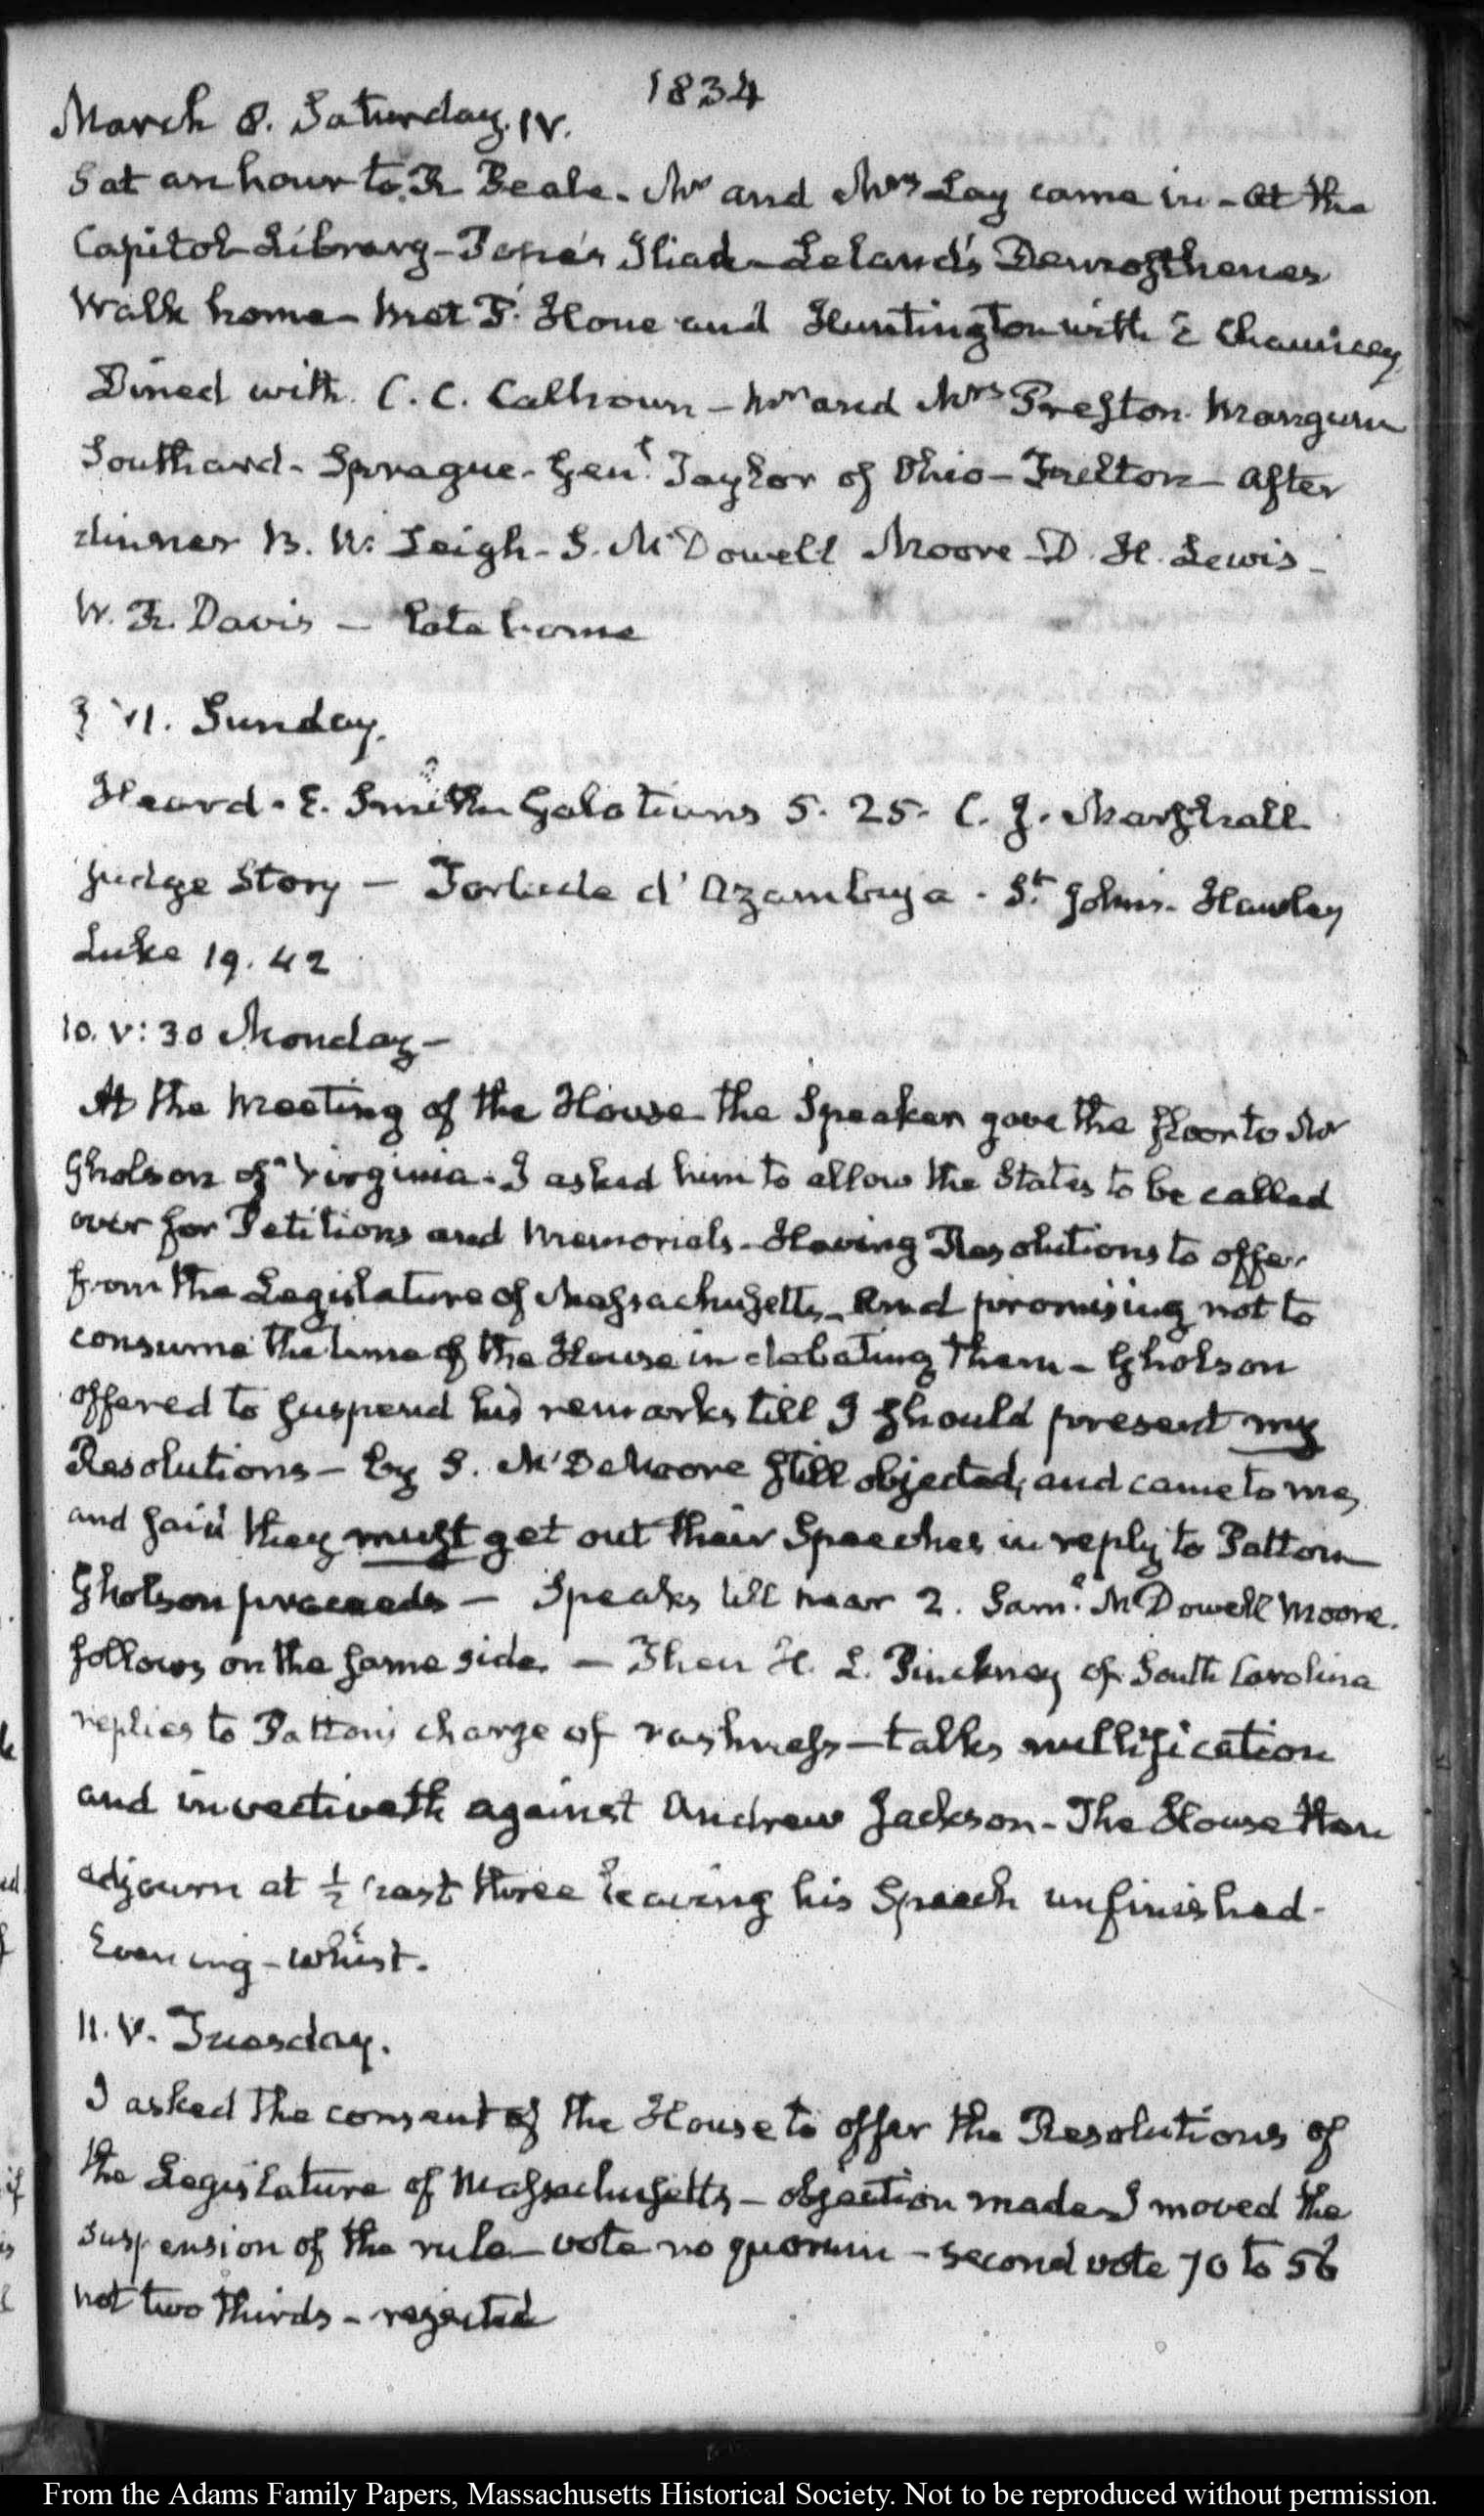 1834
March 8. Saturday. IV.
Sat an hour to R Beale. Mr and Mrs Lay came in - At the
Capitol Library - Pope's Iliad - Leland's Demosthenes
Walk home - Met P. Hone and Huntington with E Chauncey
Dined with C. C. Calhoun - Mr and Mrs Preston. Mangum
Southard - Sprague - Genl Taylor of Ohio - Felton - After
dinner B. W. Leigh - S. McDowell Moore - D. H. Lewis -
W. R. Davis - late home
VI. Sunday.
Heard - E. Smith Galatians 5. 25. C. J. Marshall
Judge Story - Torlade d'Azambuja. St John's. Hawley
Luke 19. 42
10. V: 30 Monday -
At the meeting of the House the Speaker gave the floor to Mr
Gholson of Virginia. I asked him to allow the States to be called
over for Petitions and Memorials - Having Resolutions to offer
from the Legislature of Massachusetts - And promising not to
consume the time of the House in debating them - Gholson
offered to suspend his remarks till I should present my
Resolutions - by S. McD Moore still objected, and came to me,
and said they must get out their Speeches in reply to Patton
Gholson proceeds - Speaks till near 2. Saml. McDowell Moore.
follows on the same side - Then H. L. Pinckney of South Carolina
replies to Patton's charge of rashness - talks nullification
and invectiveth against Andrew Jackson - The House then
adjourn at ½ past three leaving his Speech unfinished -
Evening - Whist.
11. V. Tuesday.
I asked the consent of the House to offer the Resolutions of
the Legislature of Massachusetts - objection made I moved the
suspension of the rule - vote no quorum - second vote 70 to 56
not two thirds - rejected
From the Adams Family Papers, Massachusetts Historical Society. Not to be reproduced without permission.